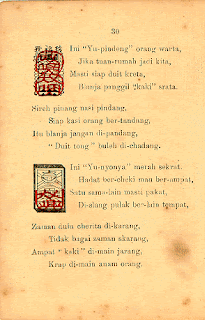 30
Ini "Yu-pindeng" orang warta,
Jika tuan-rumah jaci kita,
Masti siap duit kreta,
Bunja ponggil "kaki" srata.
Sireh pinang nasi pindang,
Siap kasi orang ber-tandang,
Itu blanja jangan di-pandang,
"Duit tong" buleh di-chadang.
Ini "Yu-nyonya" merah sekrat.
Hadat ber-cheki mau ber-ampat,
Satu sama-lain masti pakat,
Di-alang palak ber-lain tempat,
Zaman dulu cherita di-karang,
Tidak bagai zaman skarang,
Ampat "kaki" di-main jarang,
Krap di-main anam orang.